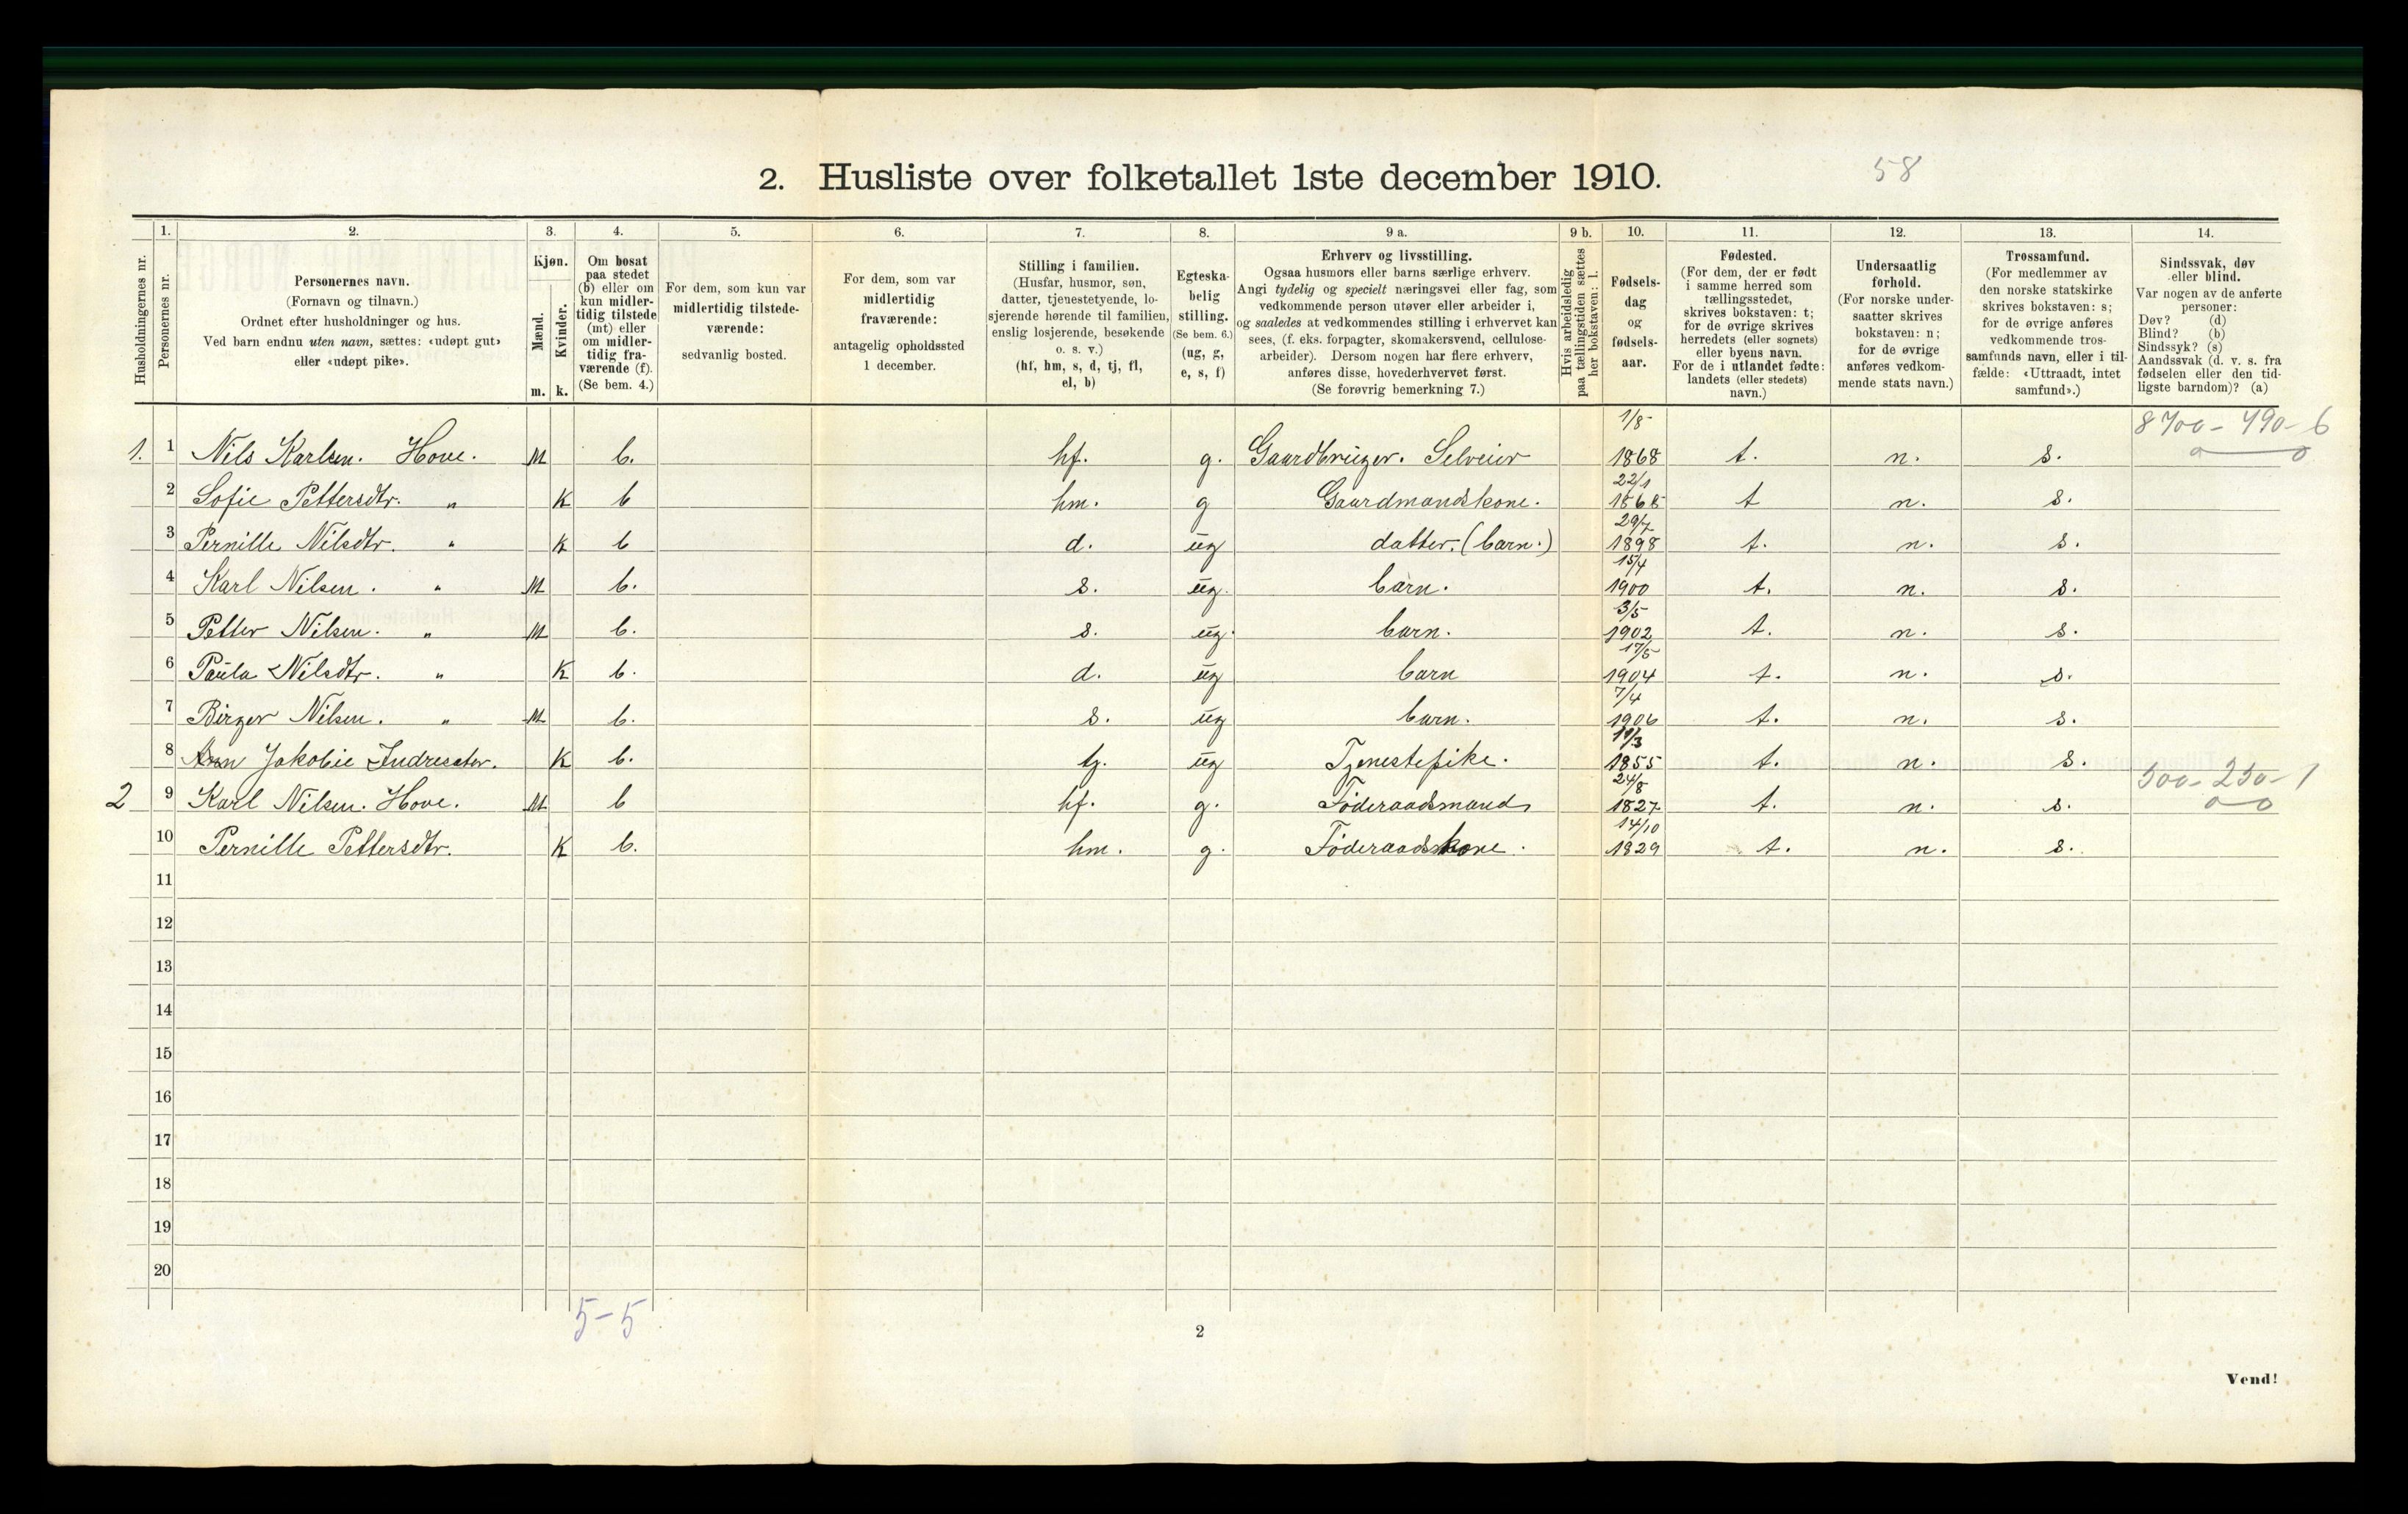 2. Husliste over folketallet 1ste december 1910.
58
1. 2. 3. 4. 5. 6. 7. 8. 9 a. 9 b. 10. 11. 12. 13. 14.
Husholdningernes nr.
Personernes nr.
Personernes navn.
(Fornavn og tilnavn.)
Ordnet efter husholdninger og hus.
Ved barn endnu uten navn, sættes: «udøpt gut»
eller «udøpt pike».
Kjøn.
Mænd.
Kvinder.
m. k.
Om bosat
paa stedet
(b) eller om
kun midler-
tidig tilstede
(mt) eller
om midler-
tidig fra-
værende (f).
(Se bem. 4.)
For dem, som kun var
midlertidig tilstede-
værende:
sedvanlig bosted.
For dem, som var
midlertidig
fraværende:
antagelig opholdssted
1 december.
Stilling i familien.
(Husfar, husmor, søn,
datter, tjenestetyende, lo-
sjerende hørende til familien,
enslig losjerende, besøkende
o. s. v.)
(hf, hm, s, d, tj, fl,
el, b)
Egteska-
belig
stilling.
(Se bem. 6.)
(ug, g,
e, s, f)
Erhverv og livsstilling.
Ogsaa husmors eller barns særlige erhverv.
Angi tydelig og specielt næringsvei eller fag, som
vedkommende person utøver eller arbeider i,
og saaledes at vedkommendes stilling i erhvervet kan
sees, (f. eks. forpagter, skomakersvend, cellulose-
arbeider). Dersom nogen har flere erhverv,
anføres disse, hovederhvervet først.
(Se forøvrig bemerkning 7.)
Hvis arbeidsledig
paa tællingstiden sættes
her bokstaven: l.
Fødsels-
dag
og
fødsels-
aar.
Fødested.
(For dem, der er født
i samme herred som
tællingsstedet,
skrives bokstaven: t;
for de øvrige skrives
herredets (eller sognets)
eller byens navn.
For de i utlandet fødte:
landets (eller stedets)
navn.)
Undersaatlig
forhold.
(For norske under-
saatter skrives
bokstaven: n;
for de øvrige
anføres vedkom-
mende stats navn.)
Trossamfund.
(For medlemmer av
den norske statskirke
skrives bokstaven: s;
for de øvrige anføres
vedkommende tros-
samfunds navn, eller i til-
fælde: «Uttraadt, intet
samfund».)
Sindssvak, døv
eller blind.
Var nogen av de anførte
personer:
Døv? (d)
Blind? (b)
Sindssyk? (s)
Aandssvak (d. v. s. fra
fødselen eller den tid-
ligste barndom)? (a)
1. 1 Nils Karlsen. Hove. M b. hf. g. Gaardbruger. Selveier 1/8 1868 t. n. s. 8700 - 490 - 6
2 Sofie Pettersdtr. " K b hm. g Gaardmandskone. 22/1 1868 t n. s.
3 Pernille Nilsdtr. " K b d. ug datter. (barn.) 29/7 1898 t. n. s.
4 Karl Nilsen. " M b. s. ug. barn. 15/4 1900 t. n. s.
5 Petter Nilsen. " M b. s. ug. barn. 3/5 1902 t. n. s.
6 Paula Nilsdtr. " K b. d. ug barn 17/5 1904 t. n. s.
7 Birger Nilsen. " M b. s. ug barn. 7/4 1906 t. n. s.
8 Jakobie K b. tj. ug Tjenestepike. 1855 t. n. s.
2 9 Karl Nilsen. Hove. M b hf. g. Föderaadsmand 24/8 1827 t. n. s. 500 - 250 - 1
10 Pernille Pettersdtr. K b. hm. g. Föderaadskone. 14/10 1829 t. n. s.
11
12
13
14
15
16
17
18
19
20
5-5
2
Vend!